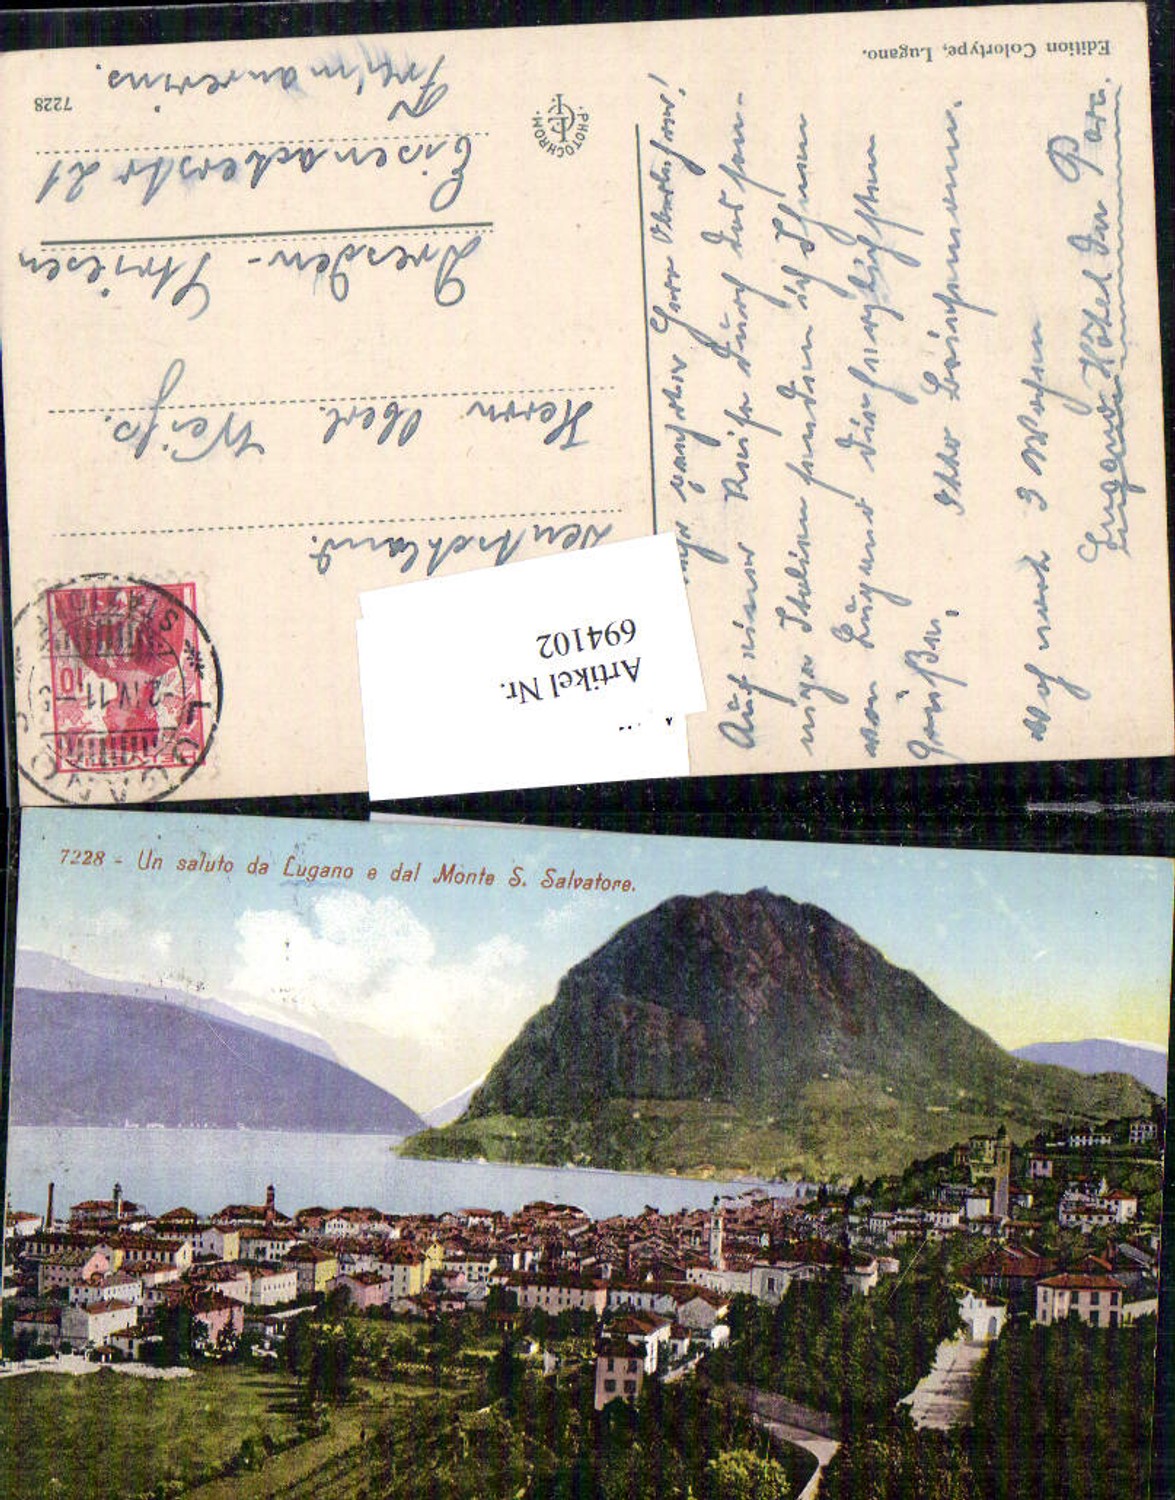 Edition Colortype, Lugano.
PHOTOCHROM
7228
Auf einer Reise durch das son-
nige Italien senden ich Ihnen
von Lugano die herzlichsten
Grüße.
Ihr
noch 3 Wochen
Lugano Hôtel du Parc.
Deutschland.
Herrn Oberl. Weiß.
Dresden-Striesen
Eisenacherstr 21
HELVETIA
10
LUGANO
STAZ
2.IV.11
Artikel Nr.
694102
7228 - Un saluto da Lugano e dal Monte S. Salvatore.